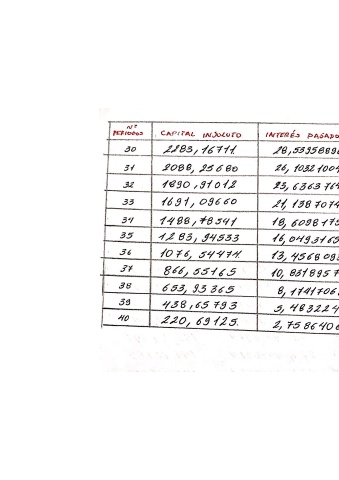 Nº PERIODOS CAPITAL INSOLUTO INTERÉS PAGADO
30 2283,16711 28,5395889
31 2088,25680 26,1032100
32 1890,91012 23,6363764
33 1691,09660 21,1387074
34 1488,78541 18,6098175
35 1283,94533 16,0493165
36 1076,54474 13,4568093
37 866,55165 10,8318957
38 653,93365 8,1741706
39 438,65793 5,483224
40 220,69125 2,7586406